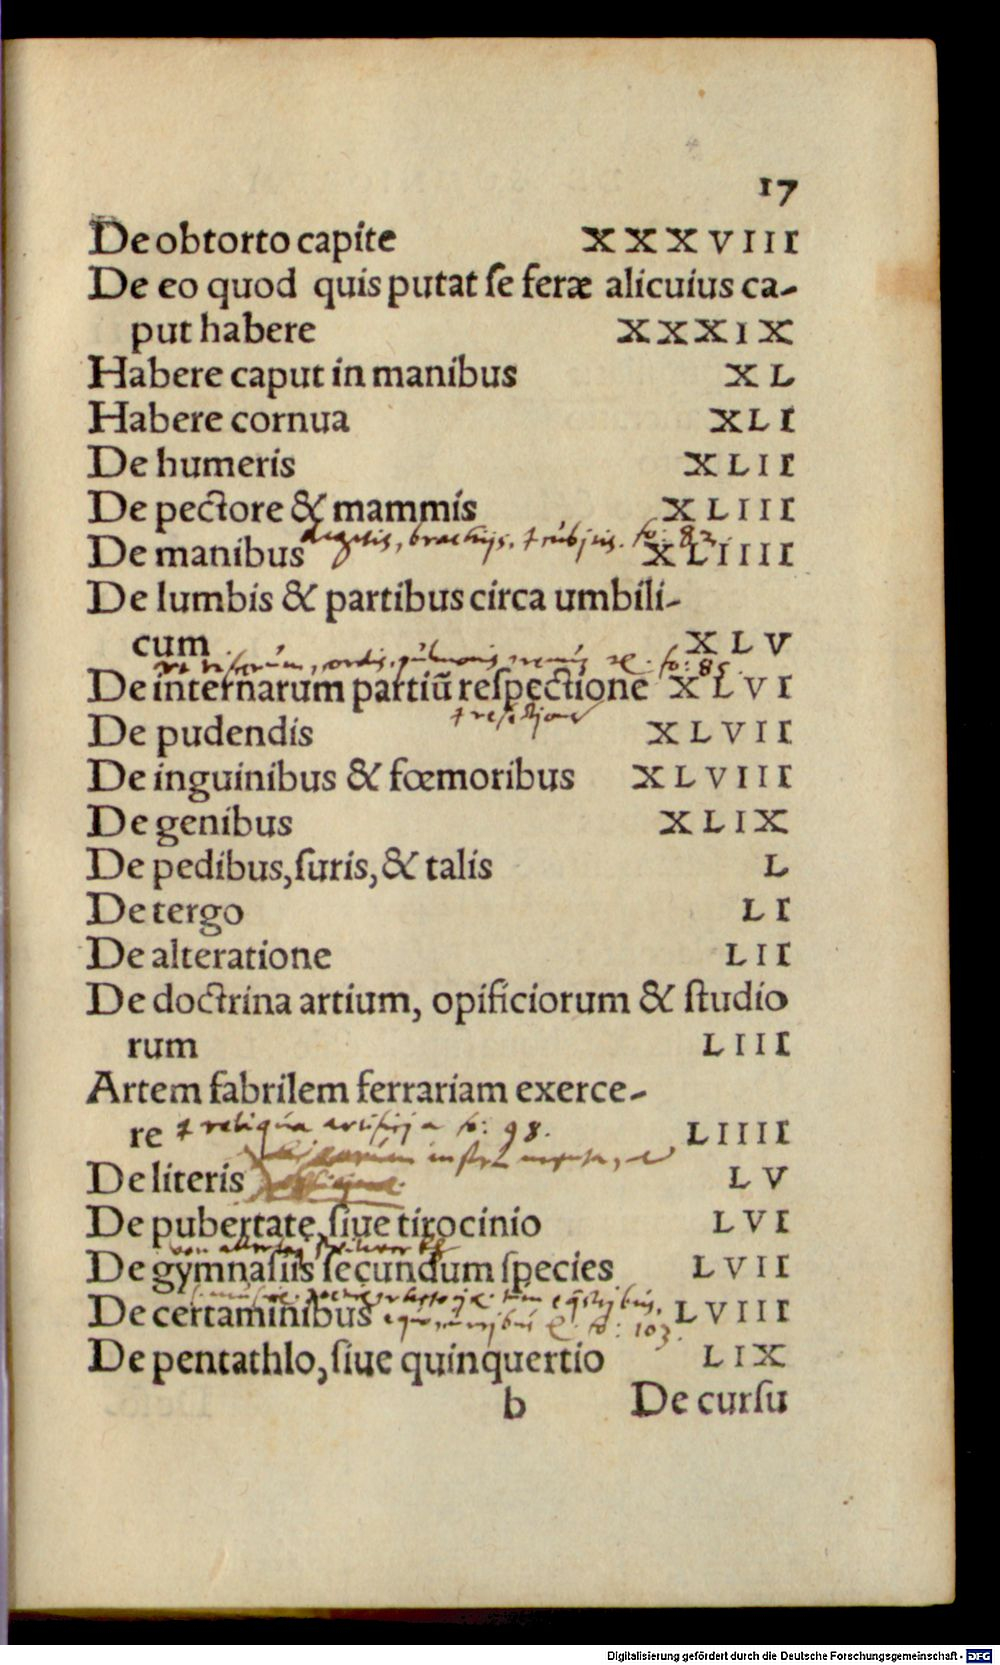 17
De obtorto capite XXXVIII
De eo quod quis putat se feræ alicuius ca-
put habere XXXIX
Habere caput in manibus XL
Habere cornua XLI
De humeris XLII
De pectore & mammis XLIII
digitis, brachijs, & cubitis. fo: 82.
De manibus XLIIII
De lumbis & partibus circa umbili-
cum XLV
cordis, pulmonis fo: 85.
De internarum partiū respectione XLVI
De pudendis XLVII
De inguinibus & fœmoribus XLVIII
De genibus XLIX
De pedibus, suris, & talis L
De tergo LI
De alteratione LII
De doctrina artium, opificiorum & studio
rum LIII
Artem fabrilem ferrariam exerce-
re & reliqua artificia fo: 98. LIIII
De literis LV
De pubertate, siue tirocinio LVI
De gymnasiis secundum species LVII
De certaminibus fo: 103. LVIII
De pentathlo, siue quinquertio LIX
b De cursu
Digitalisierung gefördert durch die Deutsche Forschungsgemeinschaft - DFG